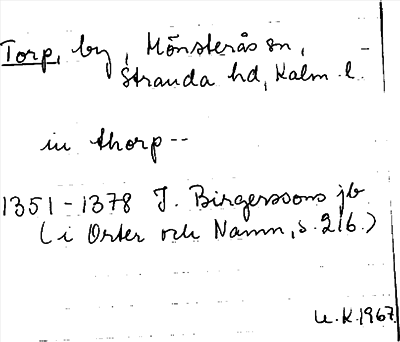 Torp, by, Mönsterås sn,
Stranda hd, Kalm. l.
in thorp --
1351-1378 J. Birgerssons jb
(i Orter och Namn, s. 216.)
U.K.1967